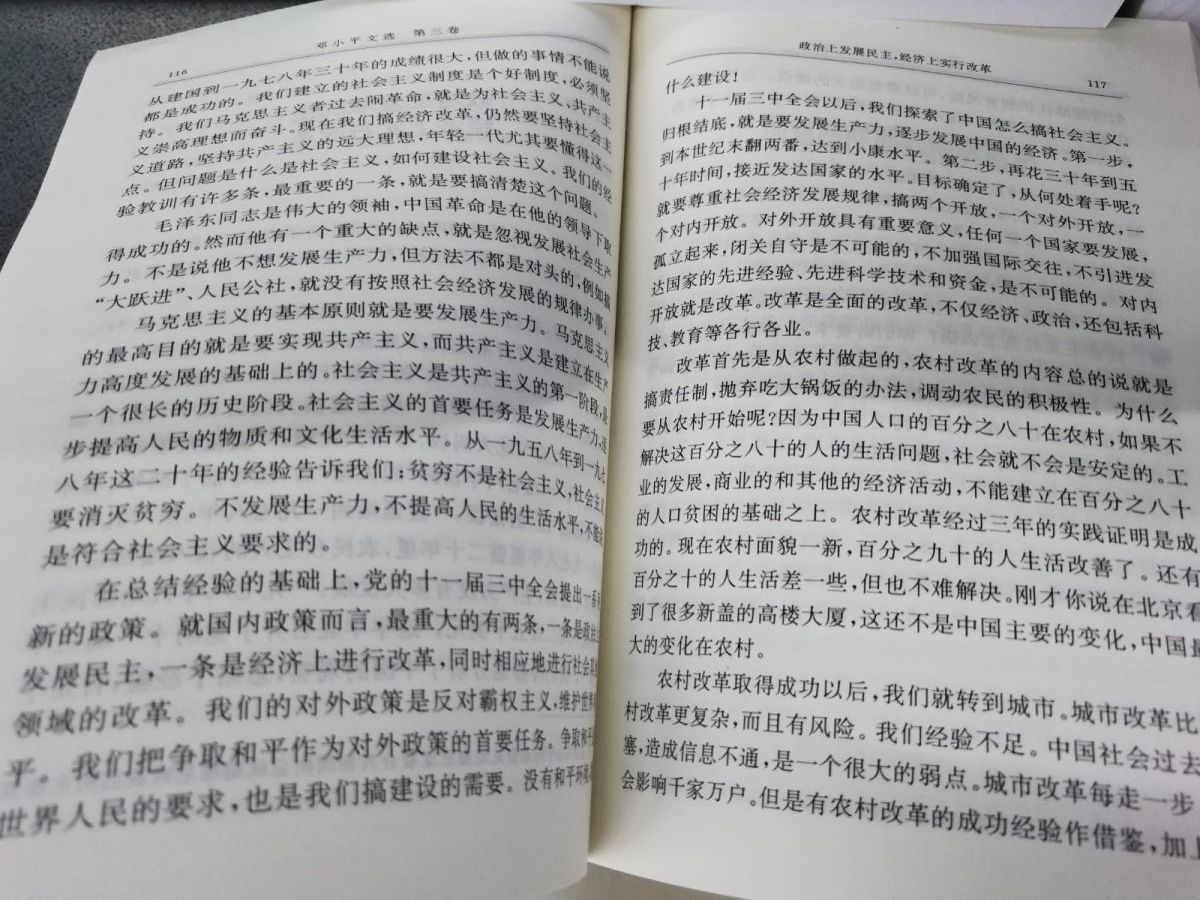 邓小平文选 第三卷
116
从建国到一九七八年三十年的成绩很大，但做的事情不能说
都是成功的。我们建立的社会主义制度是个好制度，必须坚
持。我们马克思主义者过去闹革命，就是为社会主义、共产主
义崇高理想而奋斗。现在我们搞经济改革，仍然要坚持社会主
义道路，坚持共产主义的远大理想，年轻一代尤其要懂得这一
点。但问题是什么是社会主义，如何建设社会主义。我们的经
验教训有许多条，最重要的一条，就是要搞清楚这个问题。
毛泽东同志是伟大的领袖，中国革命是在他的领导下取
得成功的。然而他有一个重大的缺点，就是忽视发展社会生产
力。不是说他不想发展生产力，但方法不都是对头的，例如搞
“大跃进”、人民公社，就没有按照社会经济发展的规律办事。
马克思主义的基本原则就是要发展生产力。马克思主义
的最高目的就是要实现共产主义，而共产主义是建立在生产
力高度发展的基础上的。社会主义是共产主义的第一阶段，是
一个很长的历史阶段。社会主义的首要任务是发展生产力，逐
步提高人民的物质和文化生活水平。从一九五八年到一九七
八年这二十年的经验告诉我们：贫穷不是社会主义，社会主义
要消灭贫穷。不发展生产力，不提高人民的生活水平，不能说
是符合社会主义要求的。
在总结经验的基础上，党的十一届三中全会提出一系列
新的政策。就国内政策而言，最重大的有两条，一条是政治上
发展民主，一条是经济上进行改革，同时相应地进行社会其他
领域的改革。我们的对外政策是反对霸权主义，维护世界和
平。我们把争取和平作为对外政策的首要任务。争取和平是
世界人民的要求，也是我们搞建设的需要。没有和平环境，
政治上发展民主，经济上实行改革
117
什么建设！
十一届三中全会以后，我们探索了中国怎么搞社会主义。
归根结底，就是要发展生产力，逐步发展中国的经济。第一步，
到本世纪末翻两番，达到小康水平。第二步，再花三十年到五
十年时间，接近发达国家的水平。目标确定了，从何处着手呢？
就要尊重社会经济发展规律，搞两个开放，一个对外开放，一
个对内开放。对外开放具有重要意义，任何一个国家要发展，
孤立起来，闭关自守是不可能的，不加强国际交往，不引进发
达国家的先进经验、先进科学技术和资金，是不可能的。对内
开放就是改革。改革是全面的改革，不仅经济、政治，还包括科
技、教育等各行各业。
改革首先是从农村做起的，农村改革的内容总的说就是
搞责任制，抛弃吃大锅饭的办法，调动农民的积极性。为什么
要从农村开始呢？因为中国人口的百分之八十在农村，如果不
解决这百分之八十的人的生活问题，社会就不会是安定的。工
业的发展，商业的和其他的经济活动，不能建立在百分之八十
的人口贫困的基础之上。农村改革经过三年的实践证明是成
功的。现在农村面貌一新，百分之九十的人生活改善了。还有
百分之十的人生活差一些，但也不难解决。刚才你说在北京看
到了很多新盖的高楼大厦，这还不是中国主要的变化，中国最
大的变化在农村。
农村改革取得成功以后，我们就转到城市。城市改革比
村改革更复杂，而且有风险。我们经验不足。中国社会过去
塞，造成信息不通，是一个很大的弱点。城市改革每走一步
会影响千家万户。但是有农村改革的成功经验作借鉴，加上